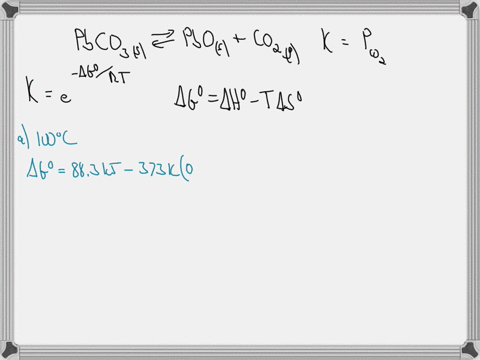 PbCO₃(s) ⇌ PbO(s) + CO₂(g) K = P_CO₂
K = e^(-ΔG°/RT) ΔG° = ΔH° - TΔS°
a) 100°C
ΔG° = 88.3 kJ - 373K(0